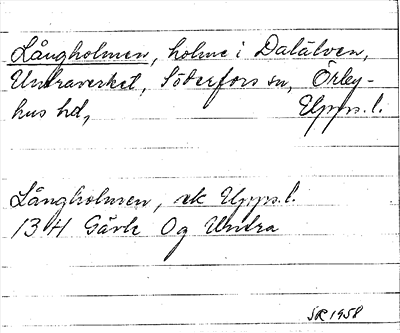 Långholmen, holme i Dalälven,
Untraverket, Söderfors sn, Örby-
hus hd, Upps. l.
Långholmen, ek Upps. l.
13 H Gävle Og Untra
SR 1958